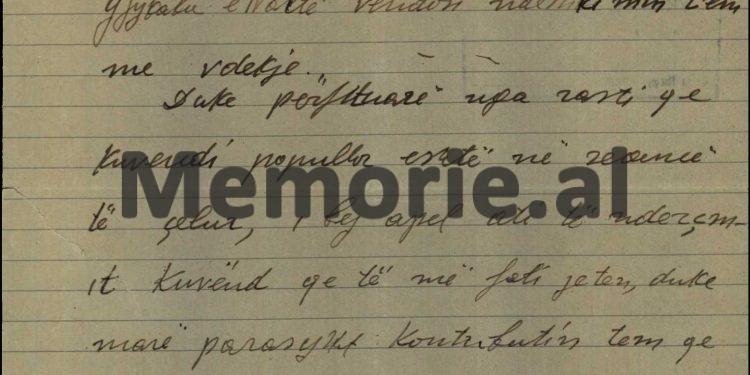 Gjykata e Naltë vendosi ndëshkimin tem
me vdekje.
Duke përfituarë nga rasti qe
Kuvendi popullor eshtë në seancë
të çelur, i bej apel ati të nderçm-
it Kuvënd qe të më fali jeten, duke
marë parasysh Kontributin tem qe
Memorie.al